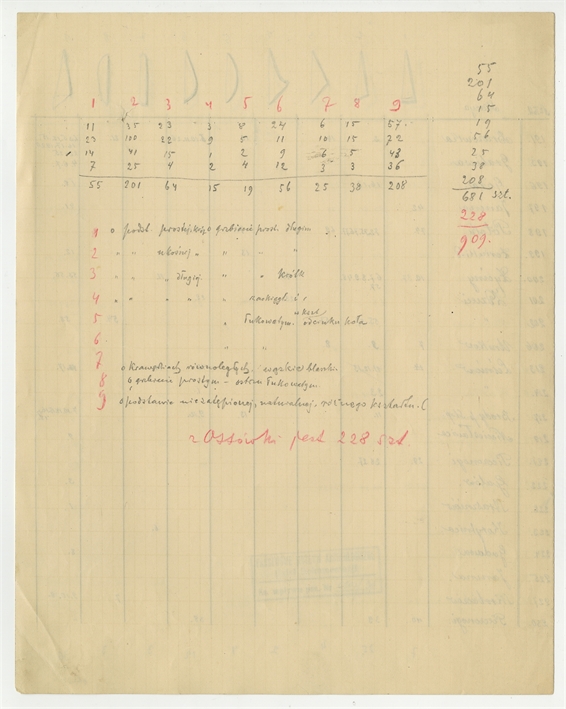 1 2 3 4 5 6 7 8 9
11 35 23 3 8 24 6 15 57
23 100 22 9 5 11 10 15 72
14 41 15 1 2 9 6 5 43
7 25 4 2 4 12 3 3 36
55 201 64 15 19 56 25 38 208
55
201
64
15
19
56
25
38
208
681 szt.
228
909.
1 o podst. prostej, o grabieniu prost. długim
2 " " " " "
3 " " długiej " " krótk
4 " " " " "
5 " łukowatym. odcinku koła
6 " "
7 o krawędziach równoległych. wąskie blaszki.
8 o prostym - ostrzu łukowatym.
9 o podstawie niezalepionej, naturalnej. różnego kształtu. (
z Ossówki jest 228 szt.